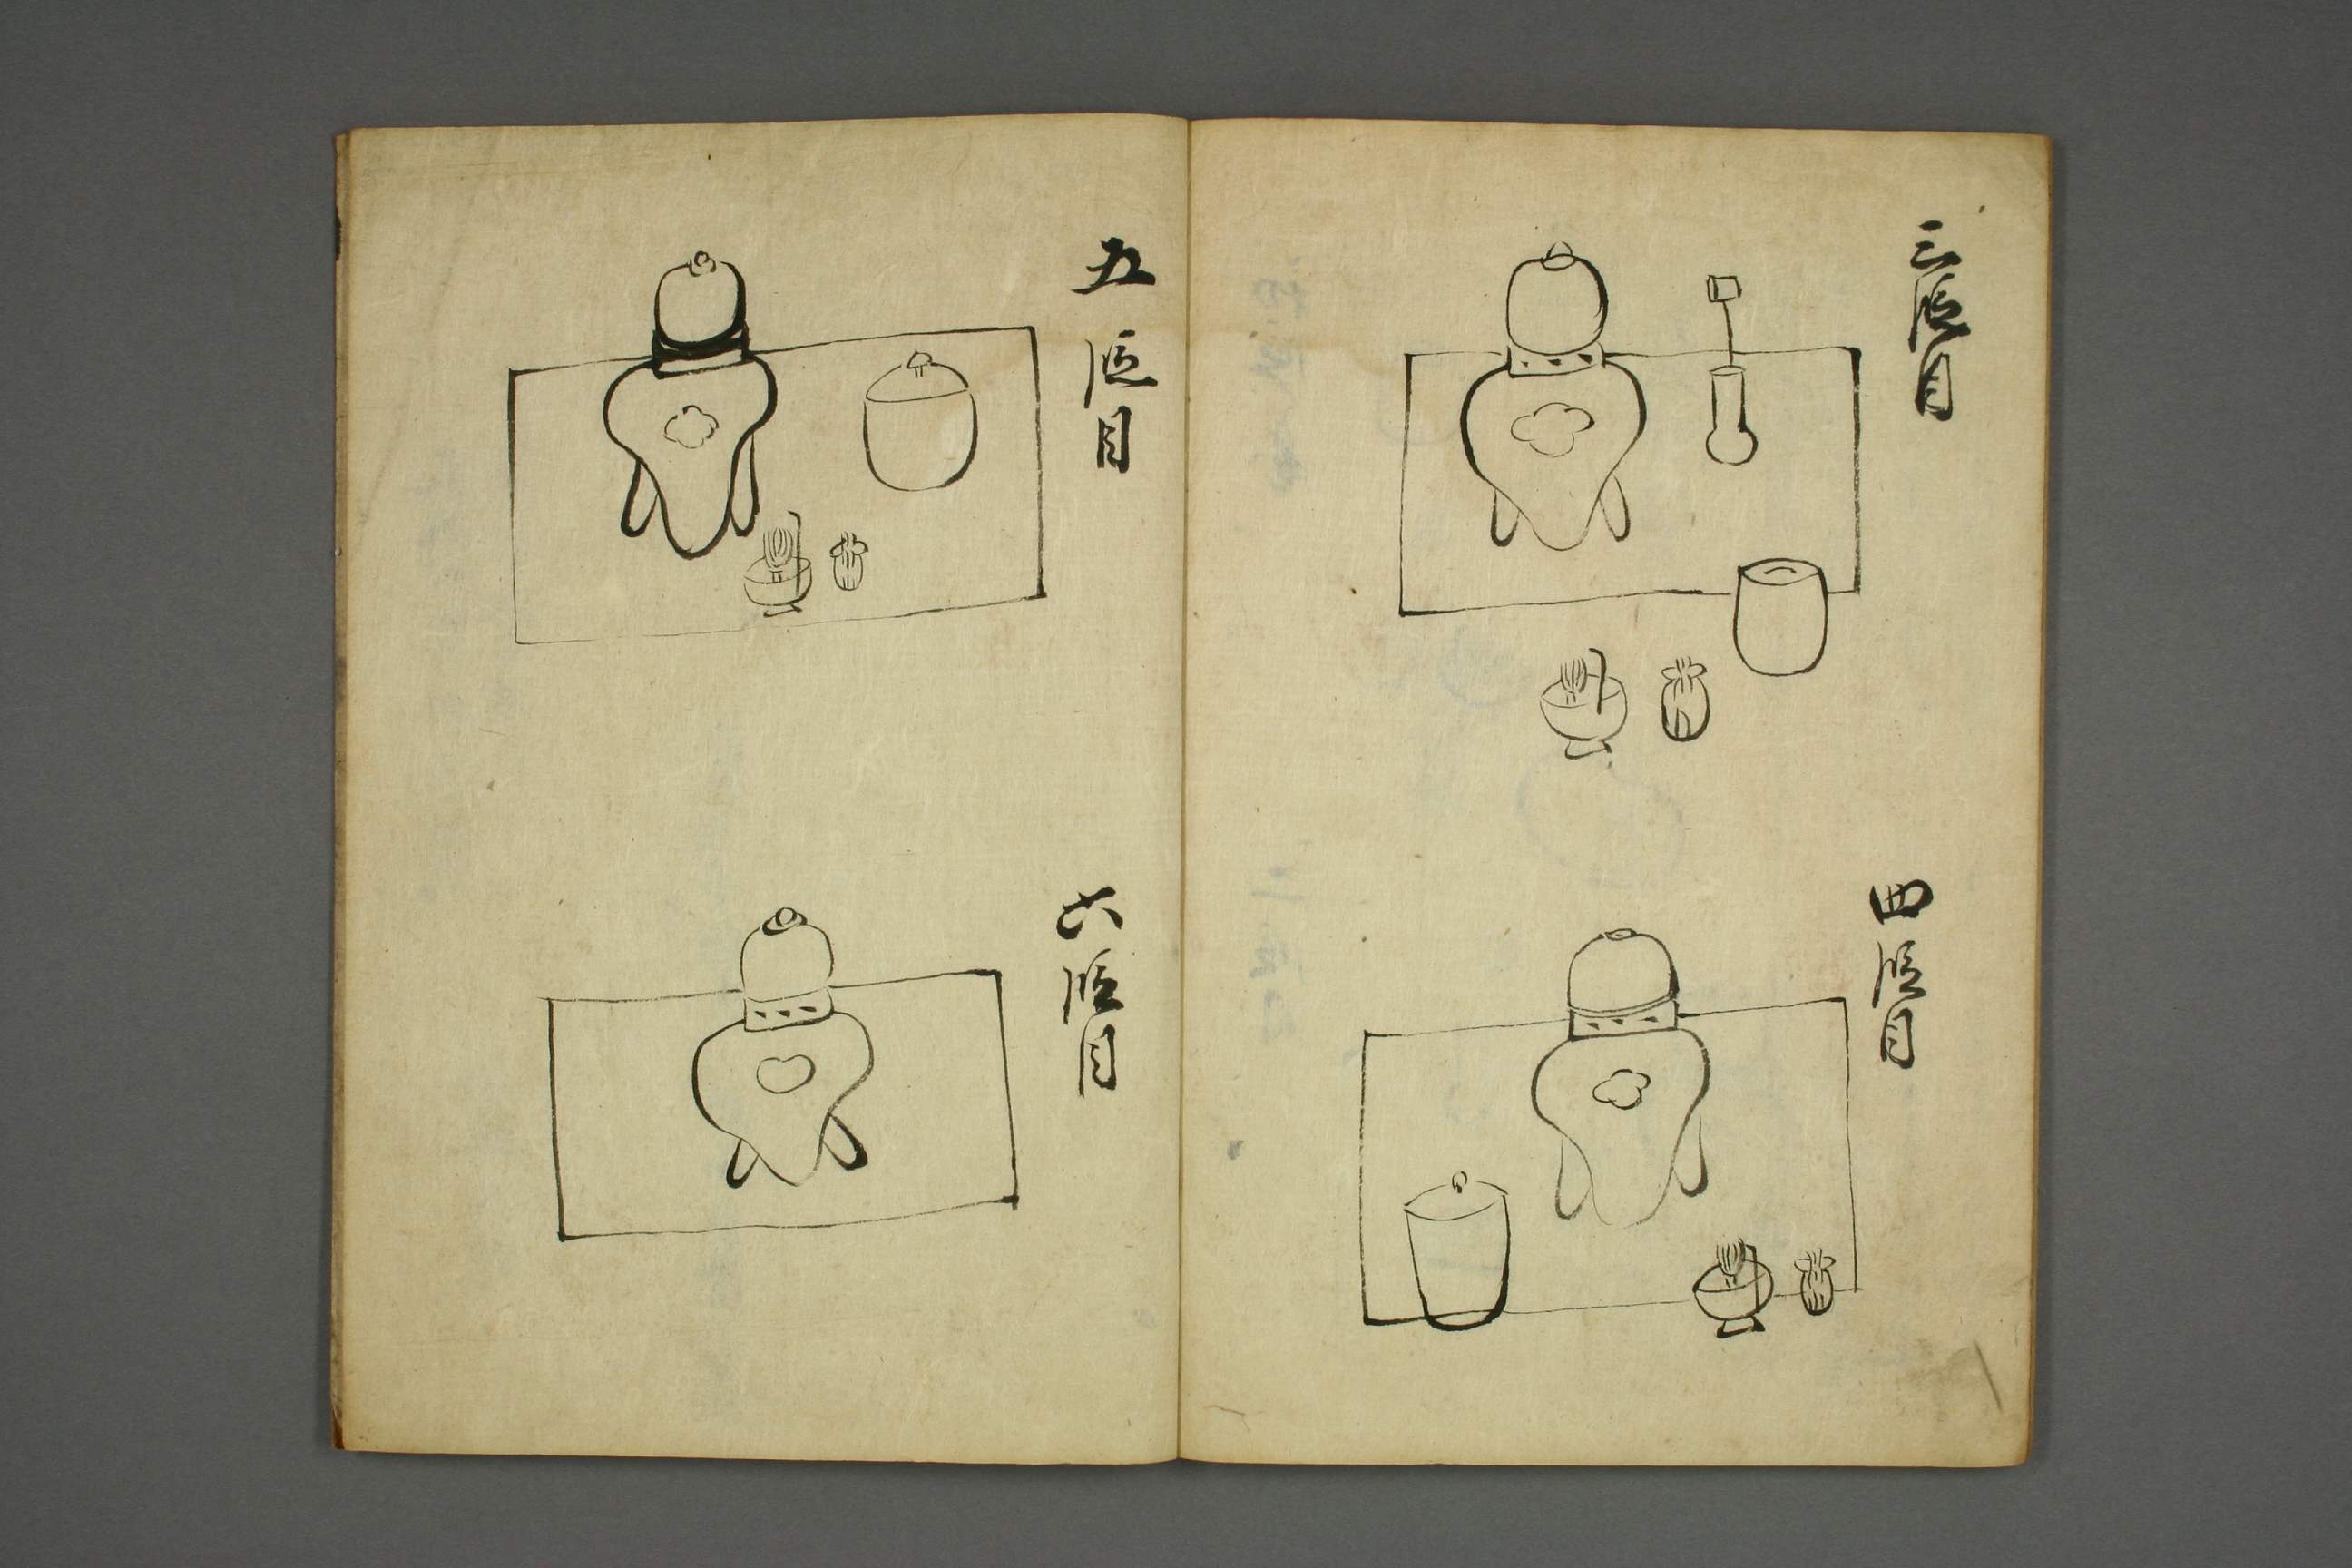 三段目
四段目
五段目
六段目